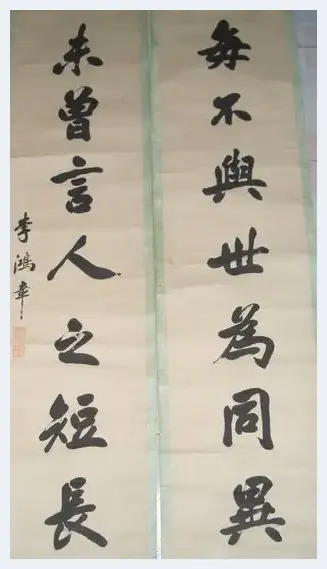 每不與世為同異
未曾言人之短長
李鴻章